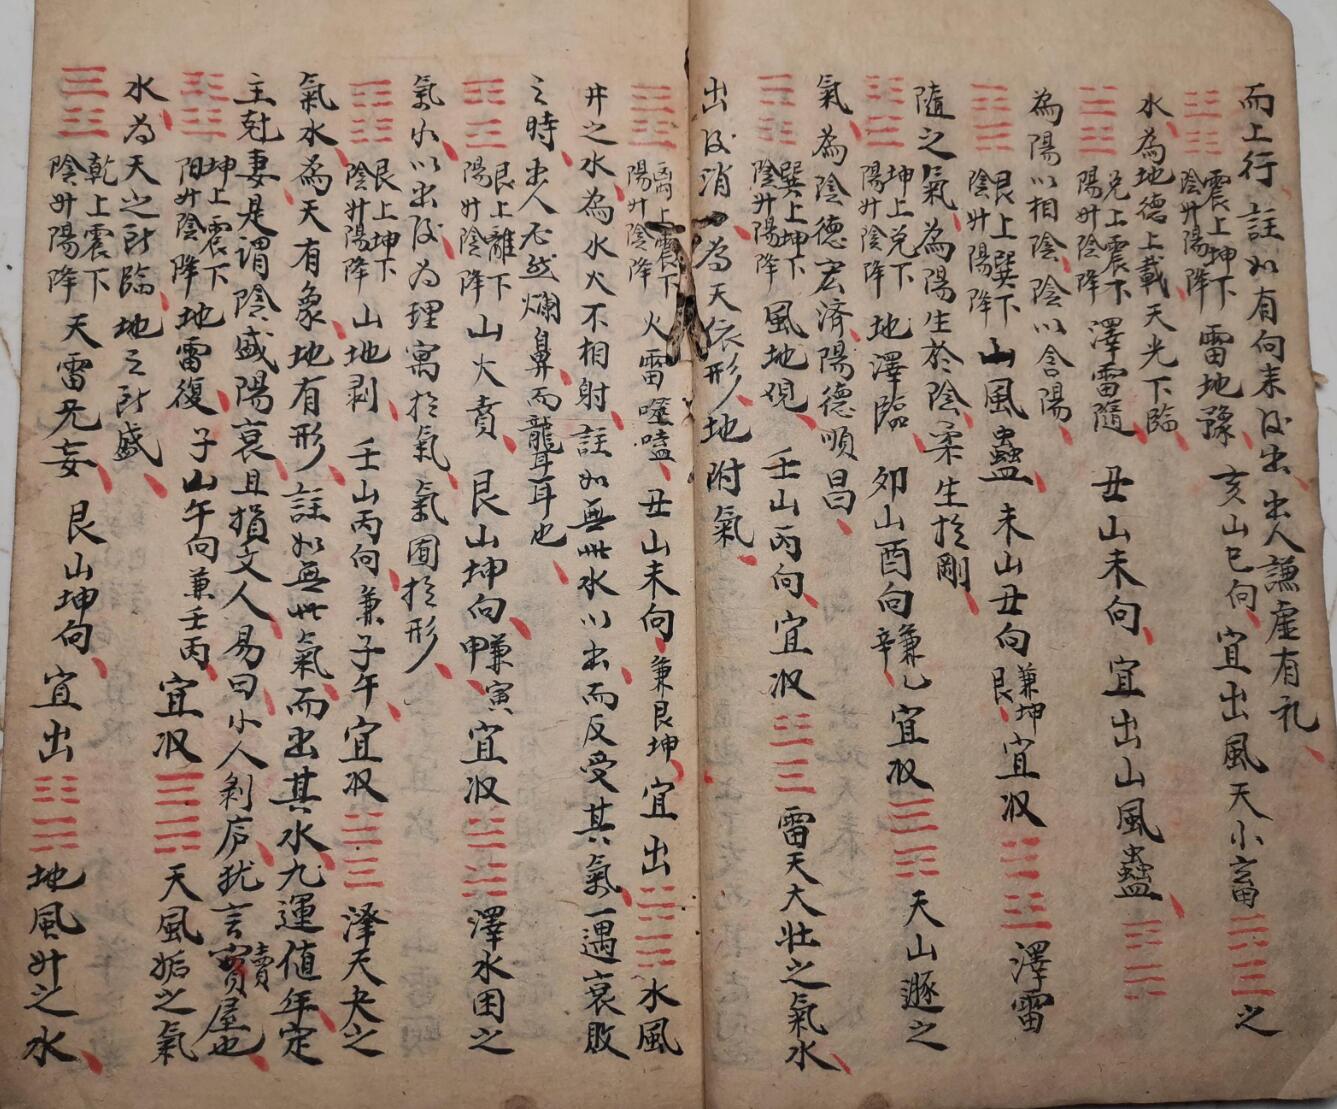 而上行註如有向來後出出人謙虛有礼
震上坤下
陰廾陽降
雷地豫 亥山巳向宜出風天小畜之
水為地德上載天光下臨
兌上震下
陽廾陰降
澤雷隨 丑山未向宜出山風蠱
為陽以相陰陰以含陽
艮上巽下
陰廾陽降
山風蠱 未山丑向兼坤艮宜收澤雷
隨之氣為陽生於陰柔生於剛
坤上兌下
陽廾陰降
地澤臨 卯山酉向兼乙辛宜收天山遯之
氣為陰德宏濟陽德順昌
巽上坤下
陰廾陽降
風地覌 壬山丙向宜收雷天大壯之氣水
出後消為天依形地附氣
离上震下
陽廾陰降
火雷噬嗑 丑山未向兼艮坤宜出水風
井之水為水火不相射註如無此水以出而反受其氣一遇衰敗
之時出人不然爛鼻而聾耳也
艮上離下
陽廾陰降
山火賁 艮山坤向兼寅申宜收澤水困之
氣水以出後為理寓於氣氣囿於形
艮上坤下
陰廾陽降
山地剥 壬山丙向兼子午宜收澤天夬之
氣水為天有象地有形註如無此氣而出其水九運值年定
主尅妻是谓陰盛陽衰且損文人易曰小人剥庐犹言賣屋也
坤上震下
阳廾陰降
地雷復 子山午向兼壬丙宜收天風姤之氣
水為天之所臨地之所盛
乾上震下
陰廾陽降
天雷旡妄 艮山坤向宜出地風廾之水